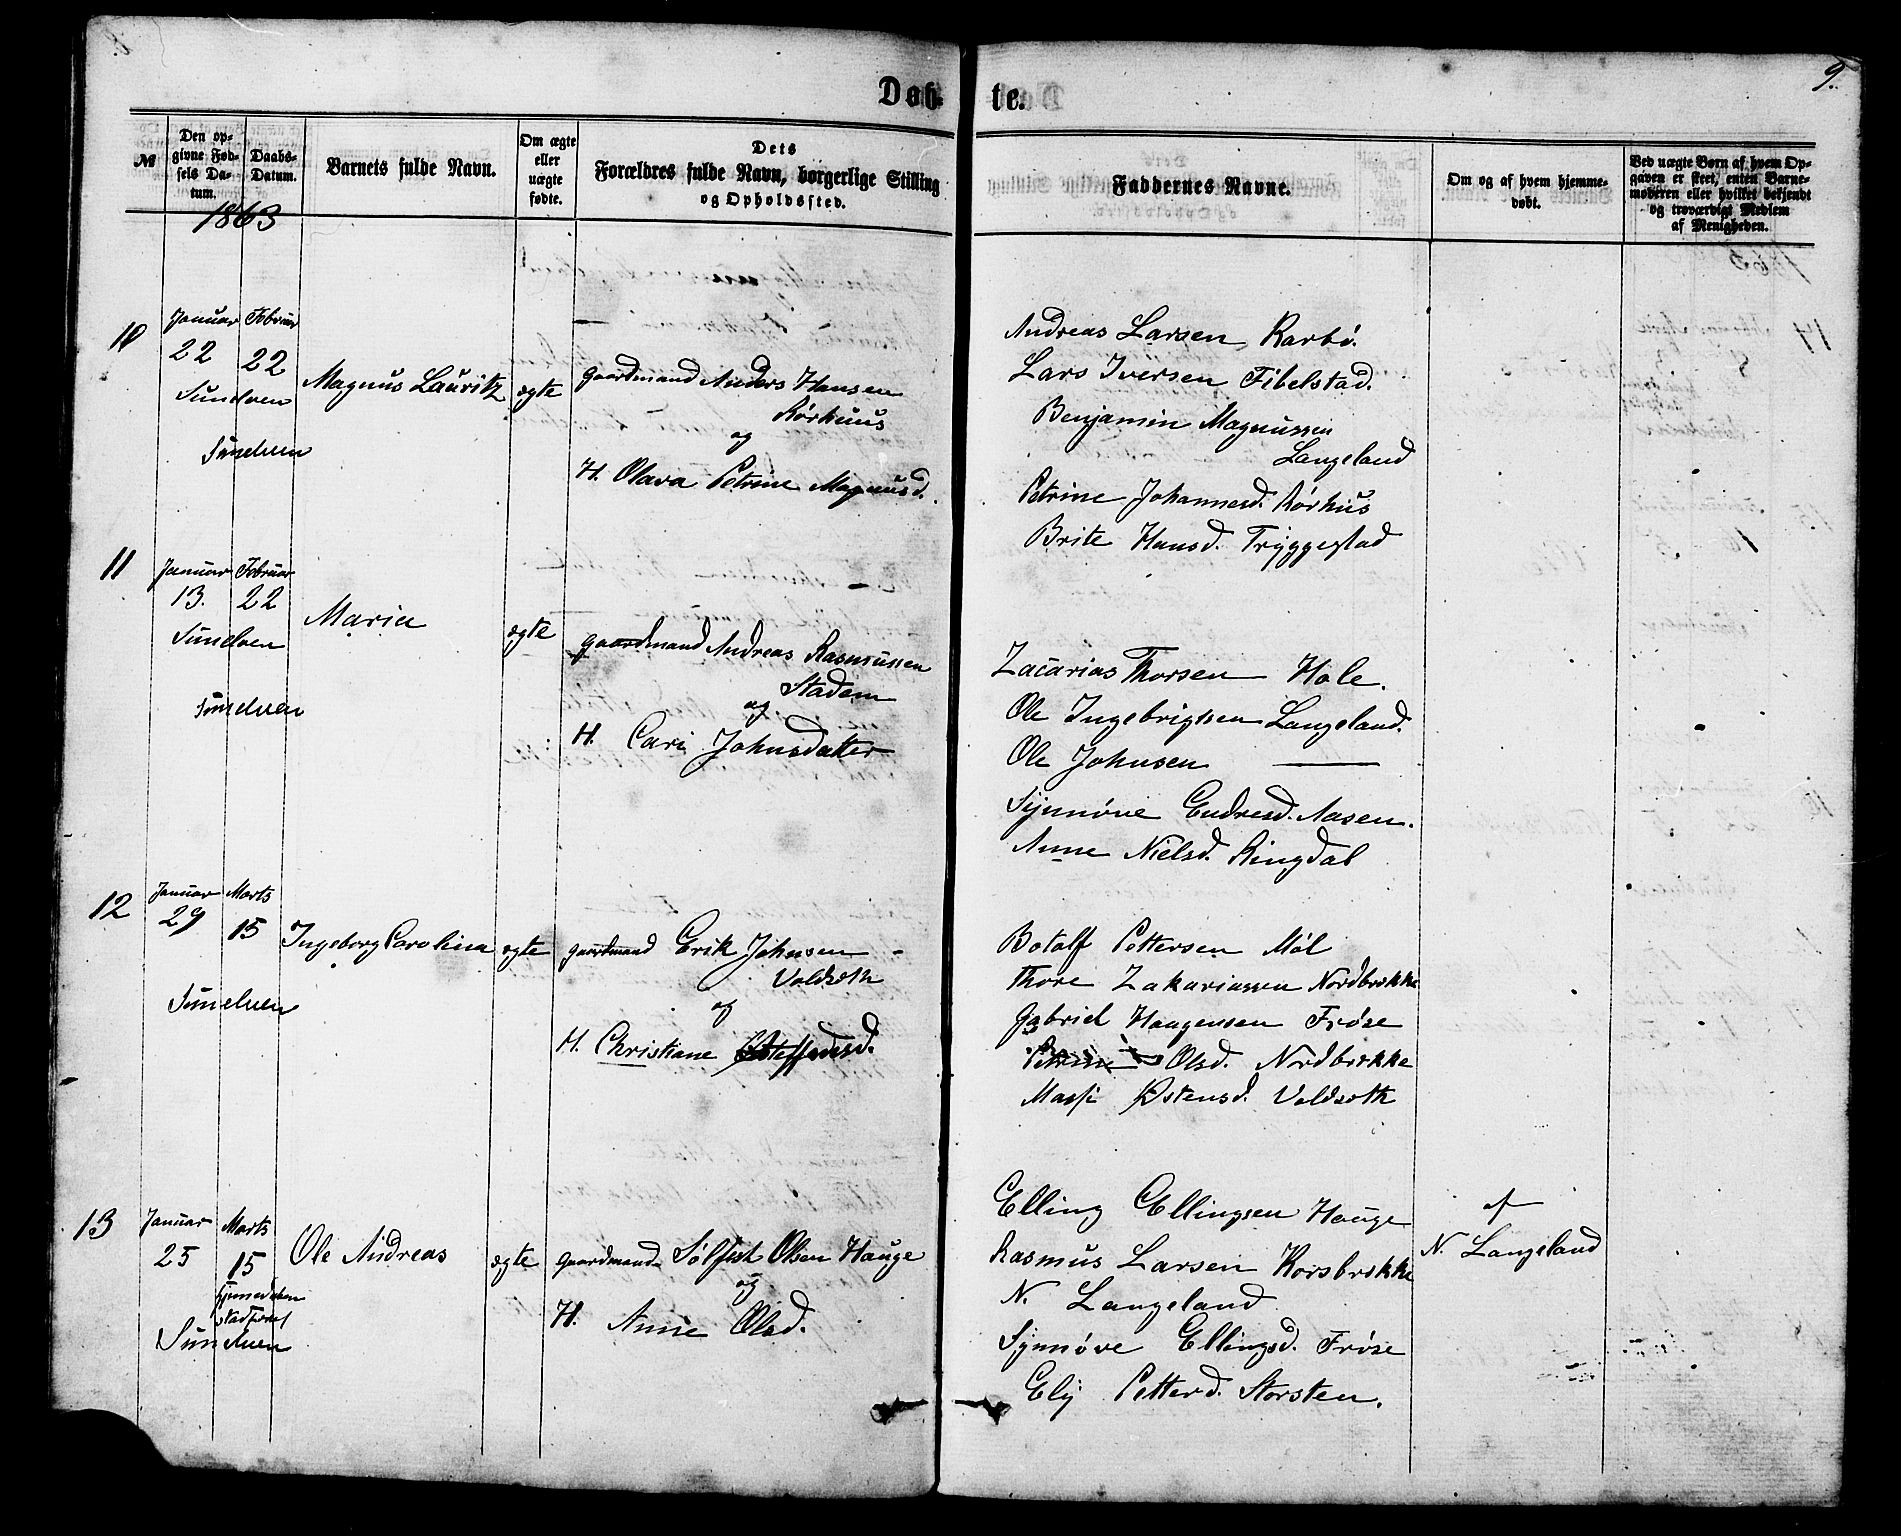 9.
Døb- te.
№
Den opgivne Fødsels Datum.
Daabs-Datum.
Barnets fulde Navn.
Om ægte eller uægte fødte.
Dets Forældres fulde Navn, borgerlige Stilling og Opholdssted.
Faddernes Navne.
Om og af hvem hjemmedøbt.
Ved uægte Børn af hvem Opgaven er skeet, enten Barnemoderen eller hvilket bekjendt og troværdigt Medlem af Menigheden.
1863
10
Januar Februar
22 22
Sunelven
Sunelven
Magnus Lauritz
ægte
gaardmand Anders Hansen
Rørhuus
og
H. Olava Petrine Magnusd.
Andreas Larsen Rarbø.
Lars Iversen Fibelstad.
Benjamin Magnussen
Langeland
Petrine Johannesd. Rørhus
Brite Hansd. Tryggestad
11
Januar Februar
13. 22
Sunelven
Sunelven
Maria
ægte
gaardmand Andreas Rasmussen
Stadem
og
H. Cari Johnsdatter
Zacarias Thorsen Hole.
Ole Ingebrigtsen Langeland.
Ole Johnsen ———
Synnøve Endresd. Aasen.
Anne Nielsd. Ringdal
12
Januar Marts
29 15
Sunelven
Ingeborg Carolina
ægte
gaardmand Erik Johnsen
Voldsæth
og
H. Christiane Steffensd.
Botolf Pettersen Møl
Thore Zakariassen Nordbrekke
Gabriel Haagensen Frøse
Petrine Olsd. Nordbrekke
Massi Østensd. Voldseth
13
Januar Marts
25 15
Sunelven
Ole Andreas
ægte
gaardmand Sølfest Olsen Hauge
og
H. Anne Olsd.
Elling Ellingsen Hauge
Rasmus Larsen Korsbrekke
N. Langeland
Synnøve Ellingsd. Frøse
Ely Petterd. Storsten.
af
N. Langeland